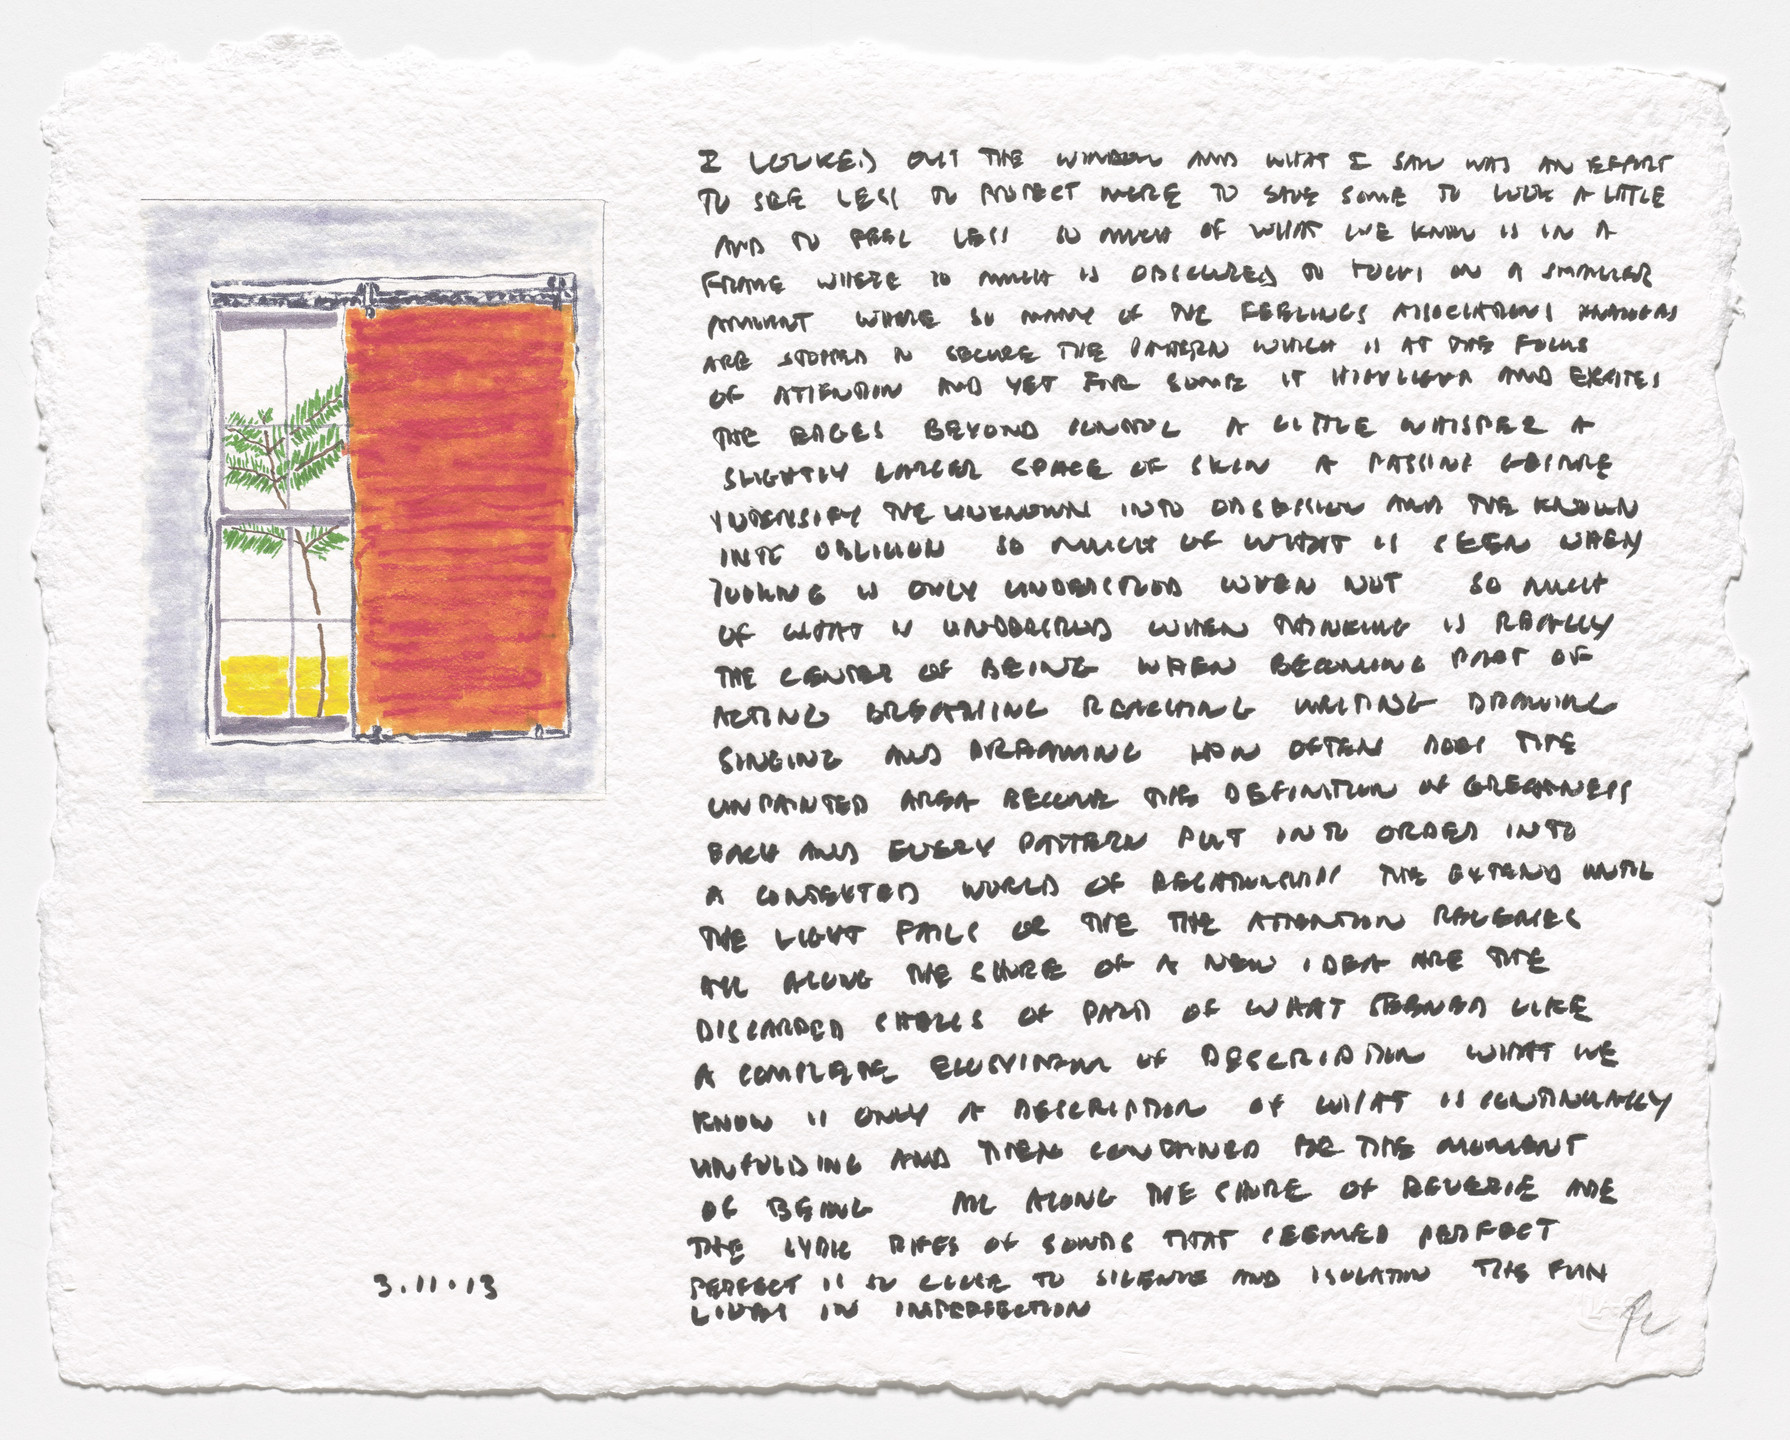 I LOOKED OUT THE WINDOW AND WHAT I SAW WAS AN EFFORT
TO SEE LESS TO PROTECT MORE TO SAVE SOME TO LOOK A LITTLE
AND TO FEEL LESS SO MUCH OF WHAT WE KNOW IS IN A
FRAME WHERE SO MUCH IS OBSCURED TO FOCUS ON A SMALLER
AMOUNT WHERE SO MANY OF THE FEELINGS ASSOCIATIONS
ARE STOPPED TO SECURE THE PATTERN WHICH IS AT THE FOCUS
OF ATTENTION AND YET FOR SOME IT HIGHLIGHTS AND EXCITES
THE EDGES BEYOND CONTROL A LITTLE WHISPER A
SLIGHTLY LARGER SPACE OF SKIN A PASSING
INTENSIFY THE UNKNOWN INTO OBSESSION AND THE KNOWN
INTO OBLIVION SO MUCH OF WHAT IS SEEN WHEN
LOOKING IS ONLY UNDERSTOOD WHEN NOT SO MUCH
OF WHAT IS UNDERSTOOD WHEN THINKING IS REALLY
THE CENTER OF BEING WHEN BECOMING PART OF
ACTING BREATHING REACHING WRITING DRAWING
SINGING AND DREAMING HOW OFTEN DOES THE
UNPAINTED AREA BECOME THE DEFINITION OF GREATNESS
EACH AND EVERY PATTERN PUT INTO ORDER INTO
A CONTEXTED WORLD OF RELATIONSHIPS THE EXTEND UNTIL
THE LIGHT FAILS OR THE THE ATTENTION
ALL ALONG THE SHORE OF A NEW IDEA ARE THE
DISCARDED SHELLS OF PART OF WHAT SEEMED LIKE
A COMPLETE OF DESCRIPTION WHAT WE
KNOW IS ONLY A DESCRIPTION OF WHAT IS CONTINUALLY
UNFOLDING AND THEN CONTAINED FOR THE MOMENT
OF BEING ALL ALONG THE SHORE OF REVERIE ARE
THE LYRIC RIFFS OF SONGS THAT SEEMED PERFECT
PERFECT IS SO CLOSE TO SILENCE AND ISOLATION THE FUN
LIVES IN IMPERFECTION
3.11.13